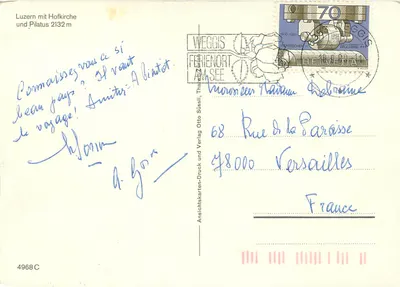 Luzern mit Hofkirche
und Pilatus 2132 m
Connaissez vous ce si
beau pays? Il vaut
le voyage! Amitiés. A bientôt.
WEGGIS
FERIENORT
AM SEE
70
Monsieur Madame
68 Rue de la Paroisse
78000 Versailles
France
Ansichtskarten-Druck und Verlag Otto Süess, Th
4968 C